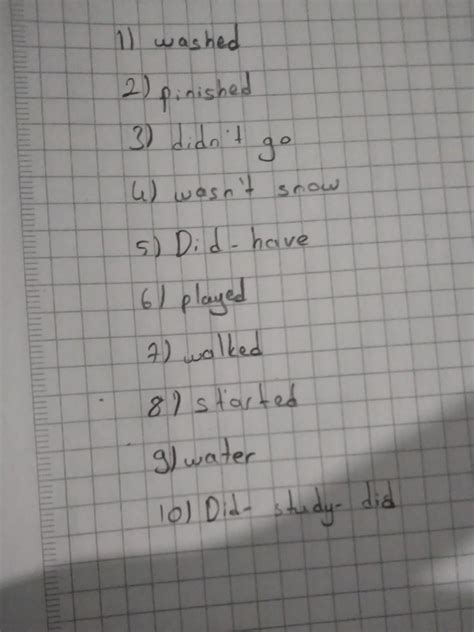 1) washed
2) pinished
3) didn't go
4) wasn't snow
5) Did - have
6) played
7) walked
8) started
9) water
10) Did - study - did